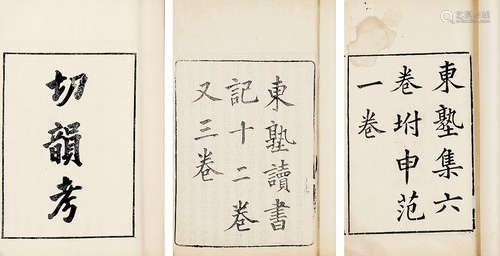 切韻考
東塾讀書
記十二卷
又三卷
東塾集六
卷坿申范
一卷